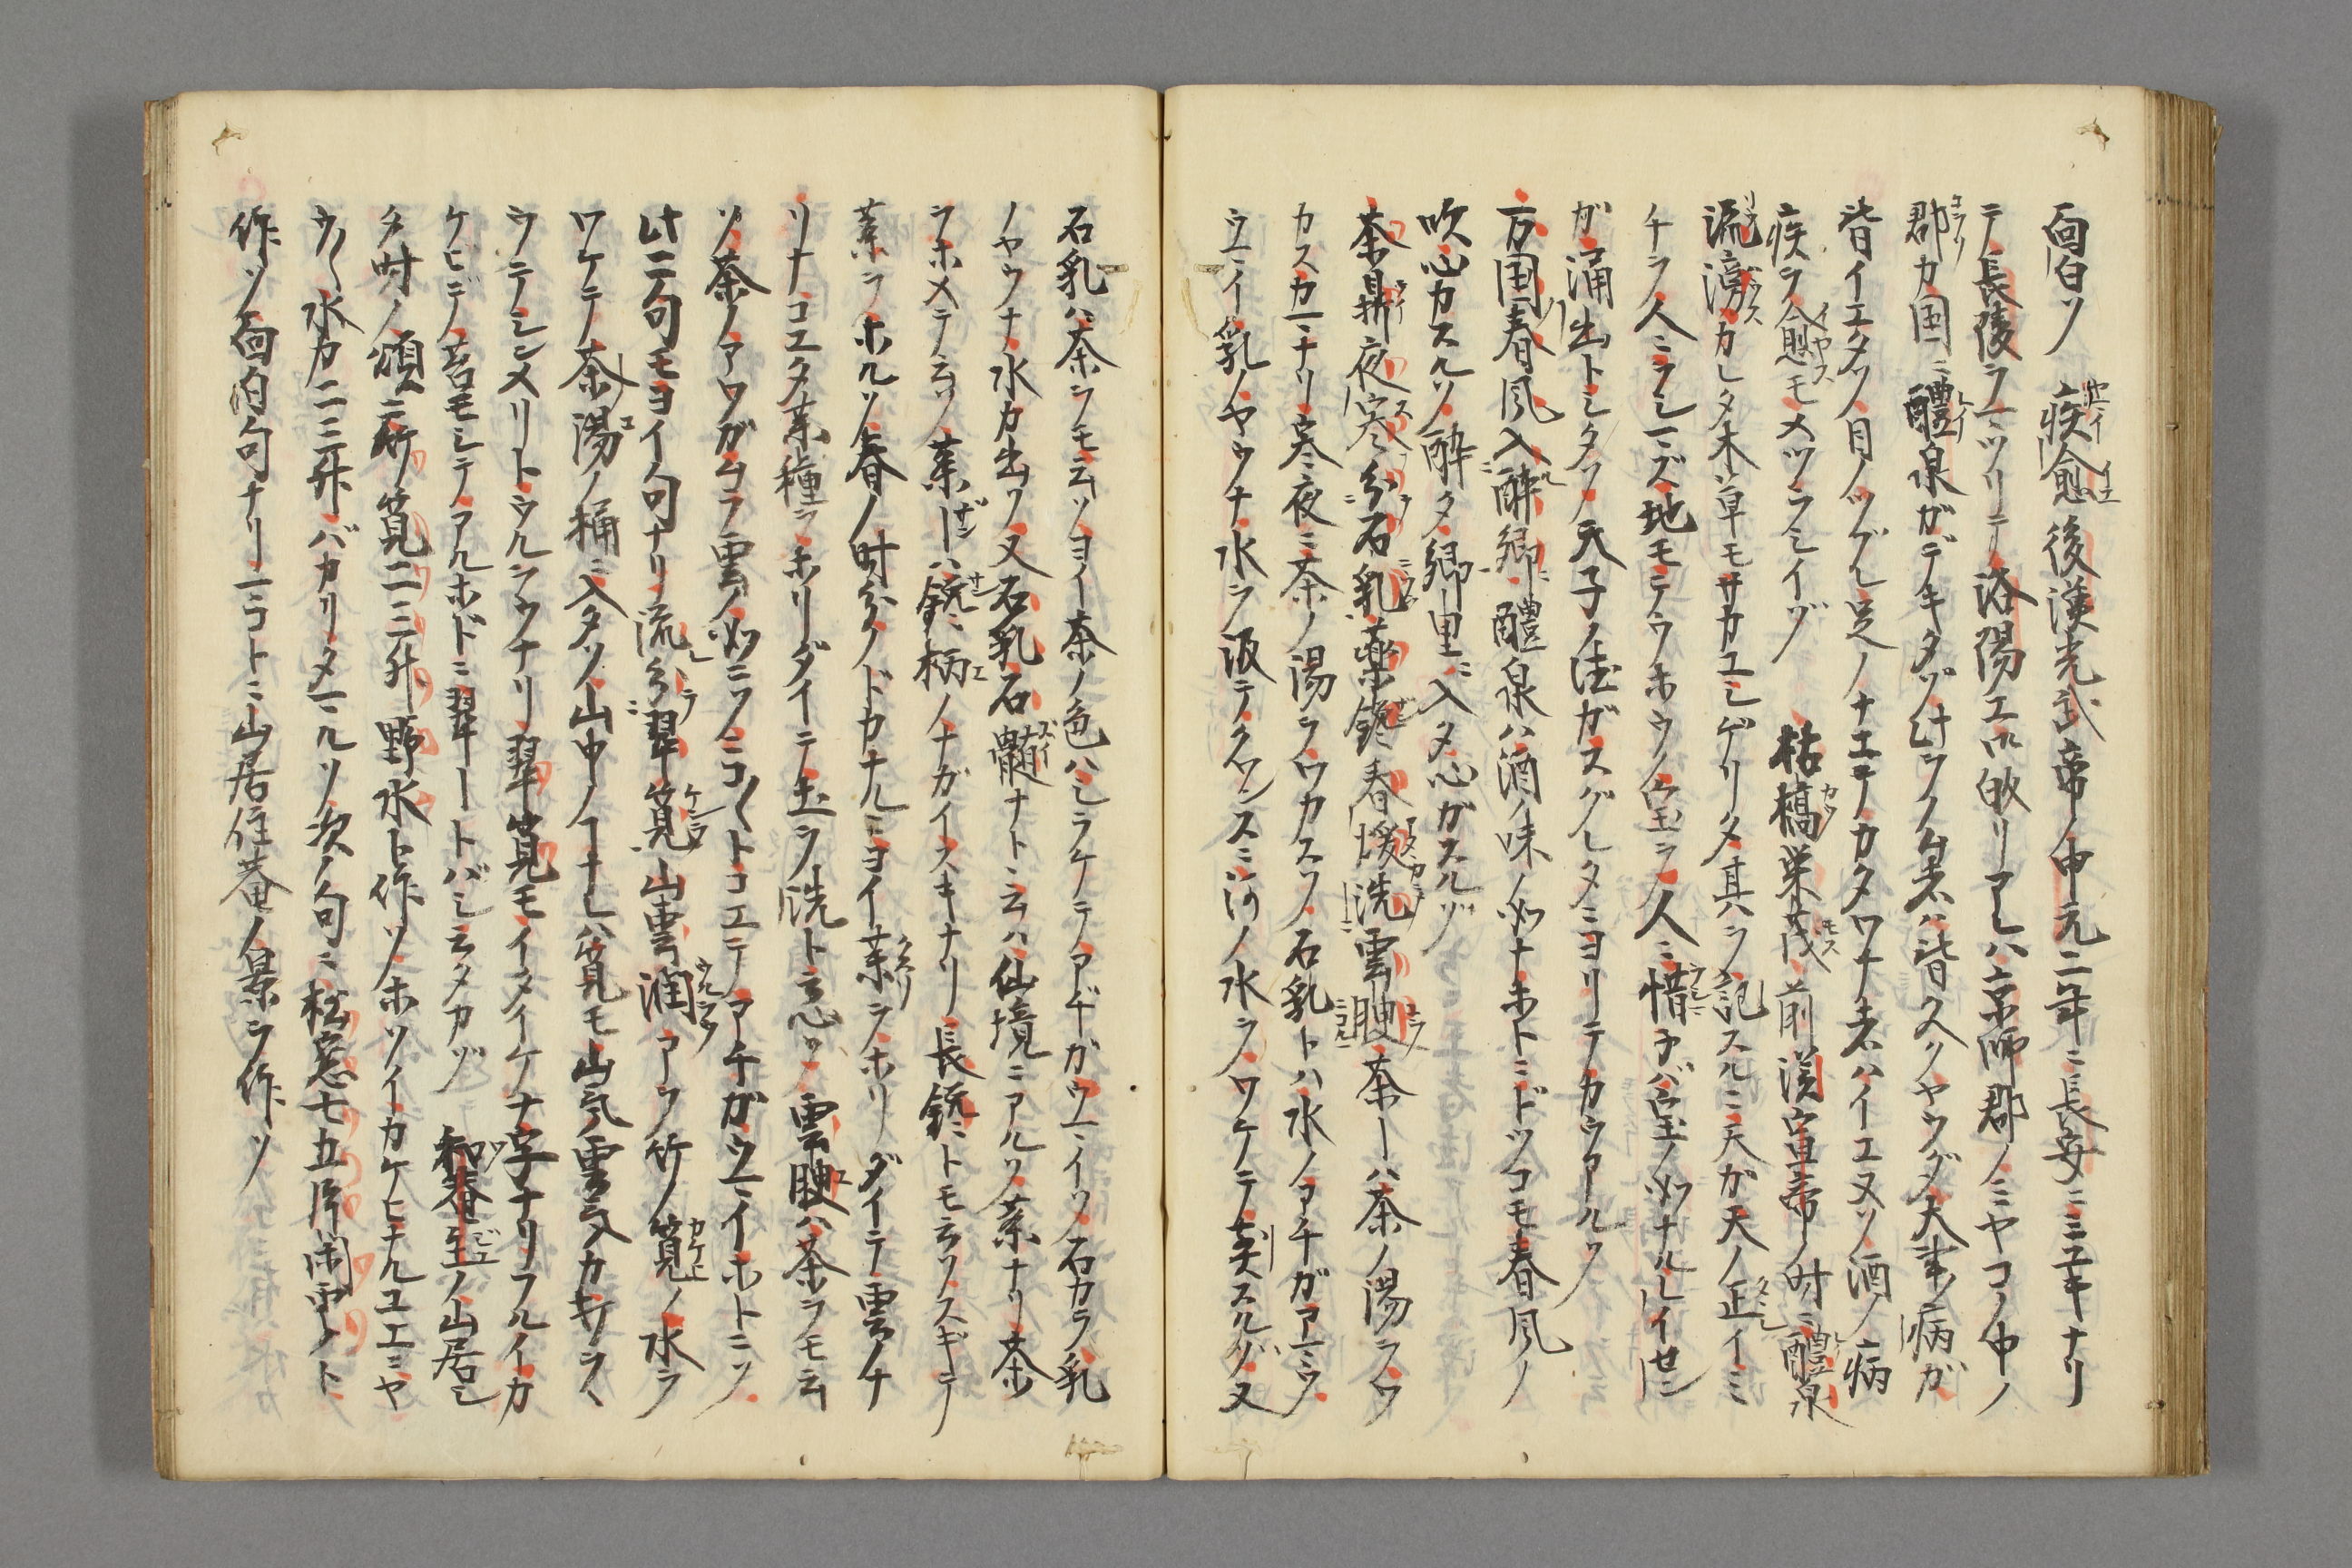 面白ソ 疾愈後漢光武帝ノ中元二年ニ長安ニミユキナリ
テ長陵ヲマツリテ洛陽エ御皈リアレハ京師郡ノミヤコノ中ノ
郡カ国ニ醴泉ガデキタゾ此ヲノム者ハ皆久クヤウダ大事ノ病ガ
皆イエタソ目ノツブレ足ノナエテカタワナ者ハイエヌソ酒ノ病
疾ヲ愈モメツラシイゾ 枯槁栄茂前漢宣帝ノ時ニ醴泉
流滂カレタ木草モサカユシゲリタ其ハラ記スルニ天ガ天ノ正イミ
チヲ人ニヲシマズ地モテウホウノ宝ヲ人ニ惜子バ宝ノ如ナルレイせン
ガ涌出トシタソ天子ノ徳ガスグレタニヨリテカウアルソ
万国春風入酔郷醴泉ハ酒ノ味ノ如ナホトニドツコモ春風ノ
吹心カスルソ酔タ郷里ニ入タ心ガスルゾ
茶鼎夜寒分石乳薬鑱春煖洗雲腴茶ーハ茶ノ湯ヲワ
カスカマナリ寒夜ニ茶ノ湯ヲワカスソ石乳トハ水ノアチガアマウ
ウマイ乳ノヤウナ水ヲ汲テクワンスニ河ノ水ヲワケテ煎スルゾ又
石乳ハ茶ヲモ云ソヨイ茶ノ色ハシラケテアヂガウマイソ石カラ乳
ノヤウナ水カ出ソ又石乳石髄ナトヽ云ハ仙境ニアルソ薬ナリ茶
ヲホメテ云ソ薬ーハ鑱柄ノナガイスキナリ長鑱トモ云ソスギテ
薬ヲホルソ春ノ時分ノドカナルニヨイ薬ヲホリダイテ雲ノナ
リナコエタ薬種ヲホリダイテ土ヲ洗ト云心ソ雲腴ハ茶ヲモ云
ソ茶ノアワガムラ雲ノ如ニソノニコ〱トコエテアチガウマイホトニソ
此二句モヨイ句ナリ流分翠筧山雲潤アウ竹ノ筧ノ水ヲ
ワケテ茶湯ノ桶ニ入タソ山中ノナレハ筧モ山気雲気カ
ウテシメリトウルヲウナリ翠筧モイタイケナ字ナリフルイカ
ケヒデ苔モシテアルホドニ翠ートバシ云タカゾ 和春至ノ山居シ
タ時ノ頌ニ竹筧二三升野水ト作ソホソイカケヒナルユエニヤ
ウ〱水カ二三升バカリタマルソ次ノ句ニ松窓七五片閑雲ト
作ソ面白句ナリマコトニ山居住菴ノ景ヲ作ソ